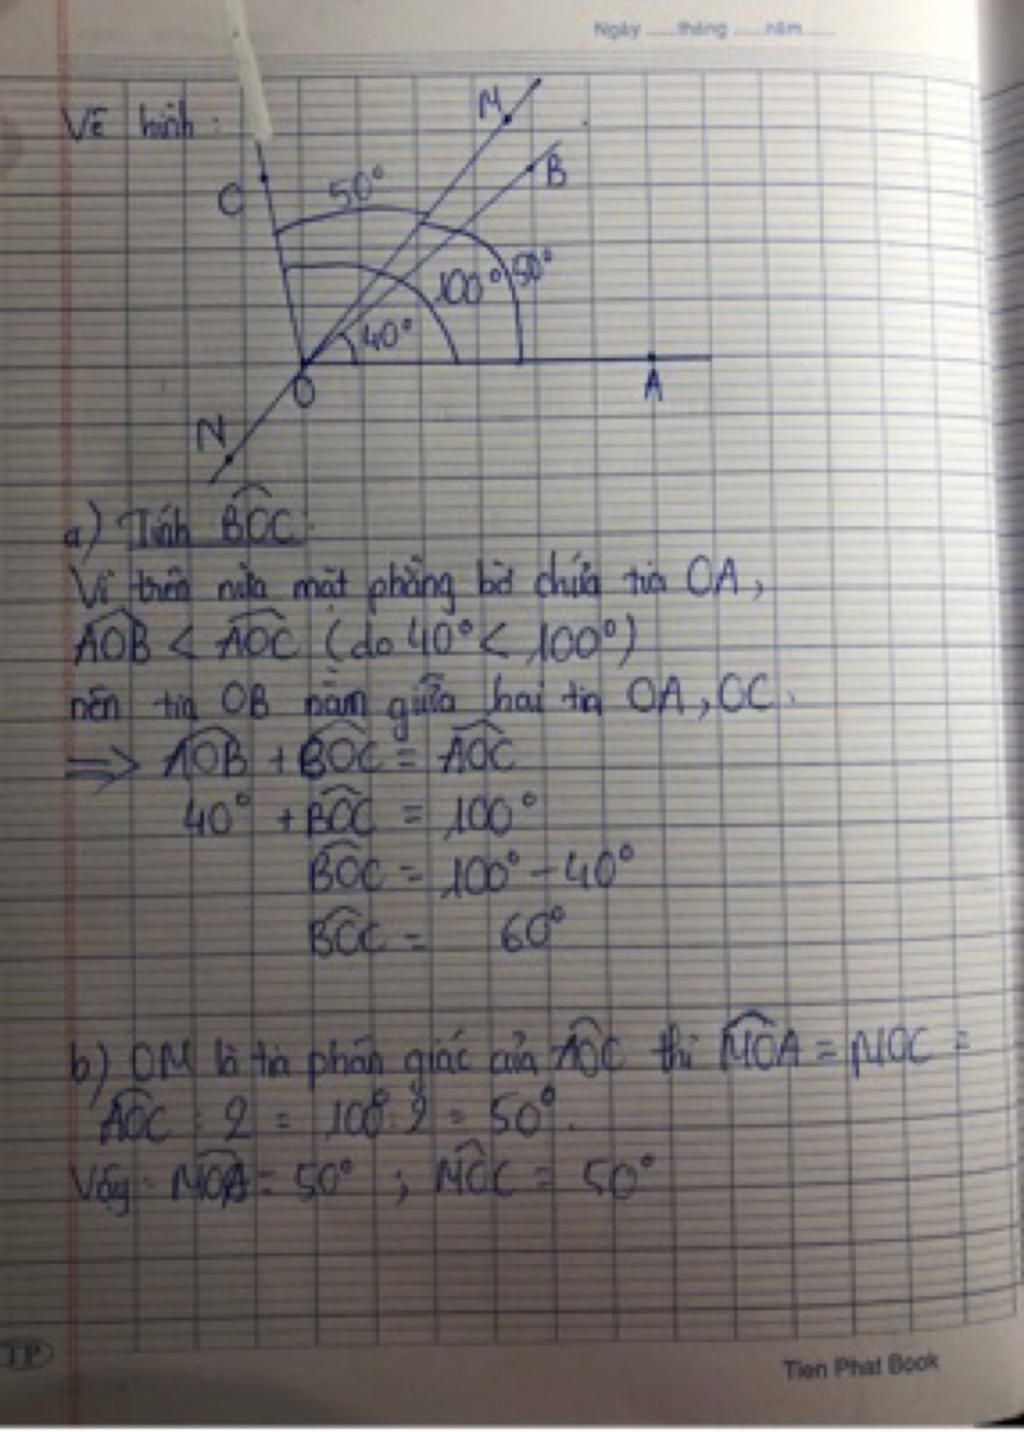 Ngày ..... tháng ..... năm .....
Vẽ hình:
M
B
C
50°
100° 50°
40°
O
A
N
a) Tính BOC:
Vì trên nửa mặt phẳng bờ chứa tia OA,
AOB < AOC (do 40° < 100°)
nên tia OB nằm giữa hai tia OA, OC.
=> AOB + BOC = AOC
40° + BOC = 100°
BOC = 100° - 40°
BOC = 60°
b) OM là tia phân giác của AOC thì MOA = MOC =
AOC : 2 = 100° : 2 = 50°.
Vậy: MOA = 50° ; MOC = 50°
TP
Tien Phat Book